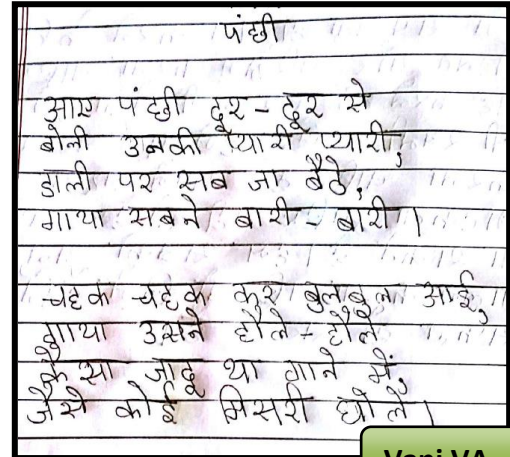 पंछी
आए पंछी दूर - दूर से
बोली उनकी प्यारी प्यारी,
डाली पर सब जा बैठे,
गाया सबने बारी - बारी ।
चहक चहक कर बुलबुल आई,
गाया उसने हौले - हौले
कैसा जादू था गाने में,
जैसे कोई मिसरी घोले ।
Vani VA